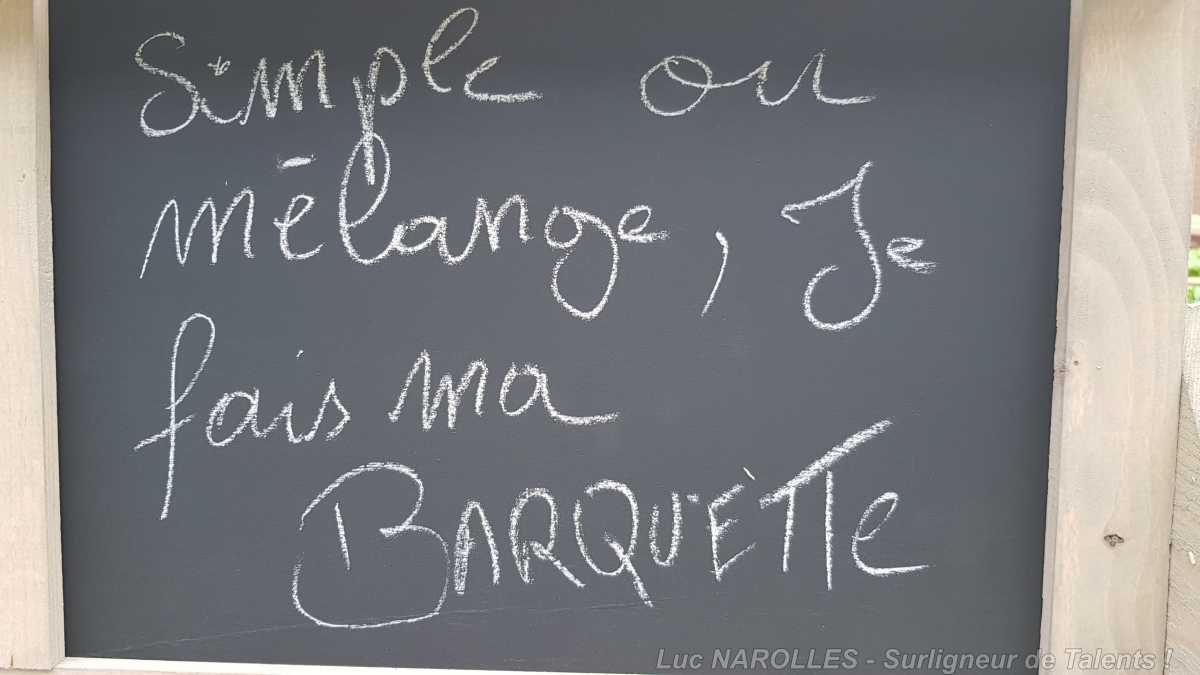 Simple ou
mélange, Je
fais ma
BARQUETTe
Luc NAROLLES - Surligneur de Talents !